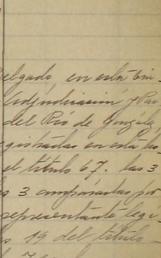 elgado, en esta bin
Adjudicación
del Rio de Gonzále
gistradas en esta
el título 67. las 3
s 3 compañadas po
representante leg
s 19 del título